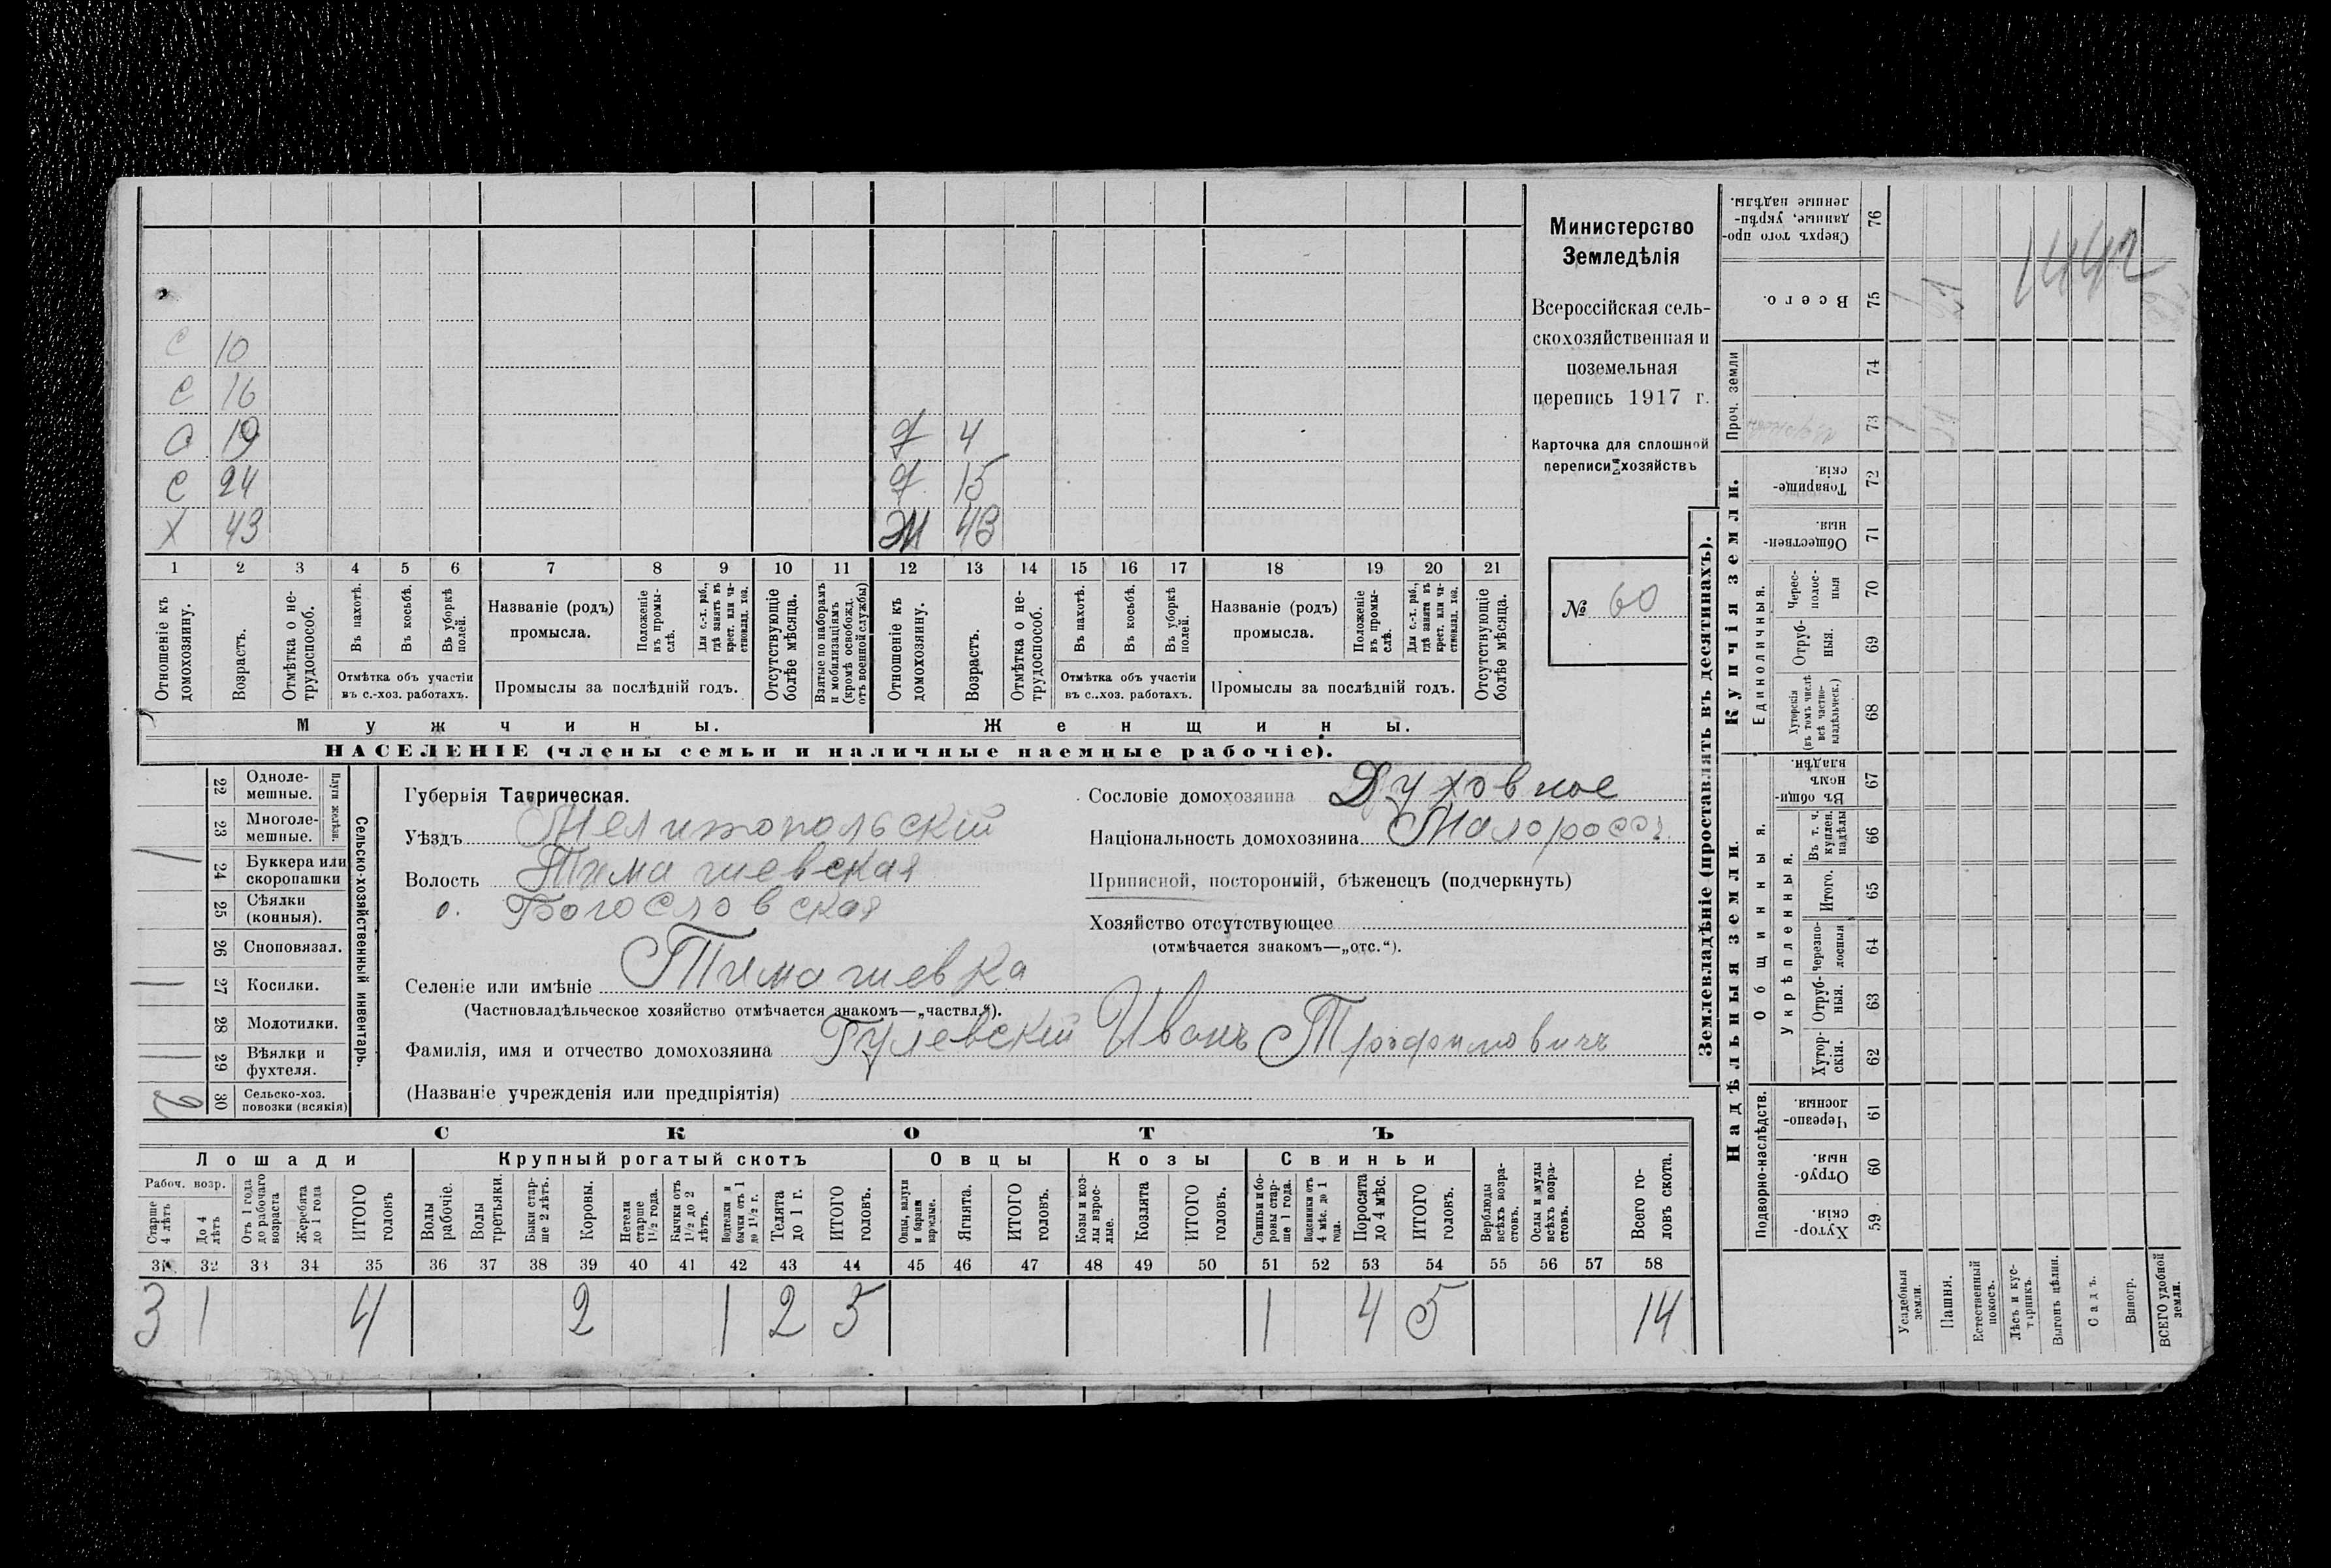 Министерство
Земледѣлія
Всероссійская сель-
скохозяйственная и
поземельная
перепись 1917 г.
Карточка для сплошной
переписи хозяйствъ
№ 60
с 10
с 16
с 19
с 24
х 43
д 4
д 15
ж 43
1 2 3 4 5 6 7 8 9 10 11 12 13 14 15 16 17 18 19 20 21
Отношеніе къ домохозяину.
Возрастъ.
Отмѣтка о не-трудоспособ.
Въ пахотѣ.
Въ косьбѣ.
Въ уборкѣ полей.
Отмѣтка объ участіи
въ с.-хоз. работахъ.
Названіе (родъ)
промысла.
Положеніе въ промы-слѣ.
Для с.-х. раб., гдѣ занятъ въ крест. или ча-стновлад. хоз.
Промыслы за послѣдній годъ.
Отсутствующіе болѣе мѣсяца.
Взятые по наборамъ и мобилизаціямъ (кромѣ освобожд. отъ военной службы)
Отношеніе къ домохозяину.
Возрастъ.
Отмѣтка о не-трудоспособ.
Въ пахотѣ.
Въ косьбѣ.
Въ уборкѣ полей.
Отмѣтка объ участіи
въ с.-хоз. работахъ.
Названіе (родъ)
промысла.
Положеніе въ промы-слѣ.
Для с.-х. раб., гдѣ занятъ въ крест. или ча-стновлад. хоз.
Промыслы за послѣдній годъ.
Отсутствующіе болѣе мѣсяца.
Мужчины.
Женщины.
НАСЕЛЕНІЕ (члены семьи и наличные наемные рабочіе).
Сельско-хозяйственный инвентарь.
Плуги желѣзн.
22 Одноле-мешные.
23 Многоле-мешные.
1 24 Буккера или скоропашки
25 Сѣялки (конныя).
26 Сноповязал.
1 27 Косилки.
28 Молотилки.
1 29 Вѣялки и фухтеля.
2 30 Сельско-хоз. повозки (всякія)
Губернія Таврическая.
Уѣздъ Мелитопольскій
Волость Тимашевская
о. Богословская
Селеніе или имѣніе Тимашевка
(Частновладѣльческое хозяйство отмѣчается знакомъ—„частвл.“).
Фамилія, имя и отчество домохозяина Гулевскій Иванъ Трофимовичъ
(Названіе учрежденія или предпріятія)
Сословіе домохозяина Духовное
Національность домохозяина Малороссъ
Приписной, посторонній, бѣженецъ (подчеркнуть)
Хозяйство отсутствующее
(отмѣчается знакомъ—„отс.“).
СКОТЪ
Лошади
Крупный рогатый скотъ
Овцы
Козы
Свиньи
Рабоч. возр.
Старше 4 лѣтъ
До 4 лѣтъ
Отъ 1 года до рабочаго возраста
Жеребята до 1 года
ИТОГО головъ
Волы рабочіе.
Волы третьяки.
Быки стар-ше 2 лѣтъ.
Коровы.
Нетели старше 1½ года.
Бычки отъ 1½ до 2 лѣтъ.
Подтелки и бычки отъ 1 до 1½ г.
Телята до 1 г.
ИТОГО головъ.
Овцы, валухи и бараны взрослые.
Ягнята.
ИТОГО головъ.
Козы и коз-лы взрос-лые.
Козлята
ИТОГО головъ.
Свиньи и бо-ровы стар-ше 1 года.
Подсвинки отъ 4 мѣс. до 1 года.
Поросята до 4 мѣс.
ИТОГО головъ.
Верблюды всѣхъ возра-стовъ.
Ослы и мулы всѣхъ возра-стовъ.
Всего го-ловъ скота.
31 32 33 34 35 36 37 38 39 40 41 42 43 44 45 46 47 48 49 50 51 52 53 54 55 56 57 58
3 1 4 2 1 2 5 1 4 5 14
Землевладѣніе (проставлять въ десятинахъ).
Купчія земли.
Надѣльныя земли.
Проч. земли
Единоличныя.
Общинныя.
Укрѣпленныя.
Подворно-наслѣдств.
Сверхъ того про-данные, укрѣп-ленные надѣлы. 76
Всего. 75
74
73
Товарище-скія. 72
Обществен-ныя. 71
Черес-полос-ныя 70
Отруб-ныя. 69
Хуторскія (въ томъ числѣ всѣ частно-владѣльческ.) 68
Въ общин-номъ владѣн. 67
Въ т. ч. куплен. надѣлы 66
Итого. 65
Черезпо-лосныя 64
Отруб-ныя. 63
Хутор-скія. 62
Черезпо-лосныя. 61
Отруб-ныя. 60
Хутор-скія. 59
1442
Усадебныя земли.
Пашня.
Естественный покосъ.
Лѣсъ и кус-тарникъ.
Выгонъ цѣлин.
Садъ.
Виногр.
ВСЕГО удобной земли.